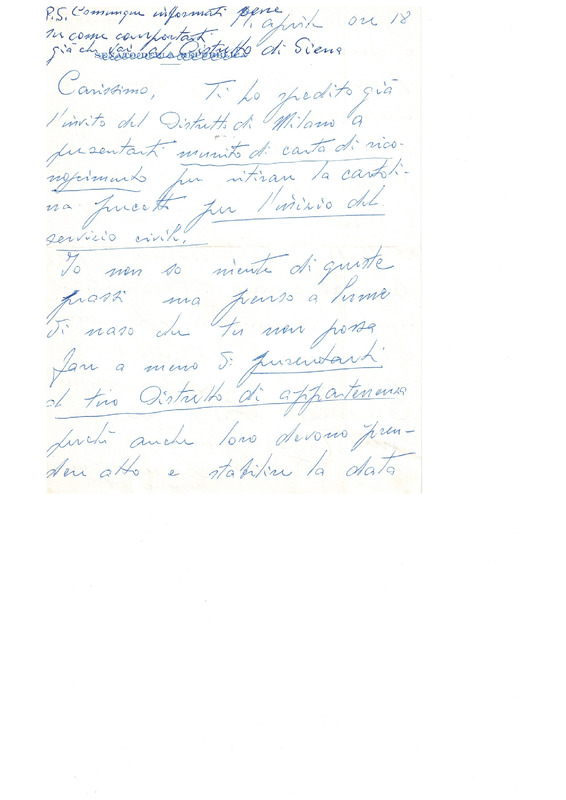 P.S. Comunque informati bene
su come comportarti
già che vai al Distretto di Siena
SENATO DELLA REPUBBLICA
11 aprile ore 18
Carissimo, Ti ho spedito già
l'invito del Distretto di Milano a
presentarti munito di carta di rico-
noscimento per ritirare la cartoli-
na precetto per l'inizio del
servizio civile.
Io non so niente di queste
prassi ma penso a lume
di naso che tu non possa
fare a meno di presentarti
al tuo Distretto di appartenenza
perché anche loro devono pren-
dere atto e stabilire la data